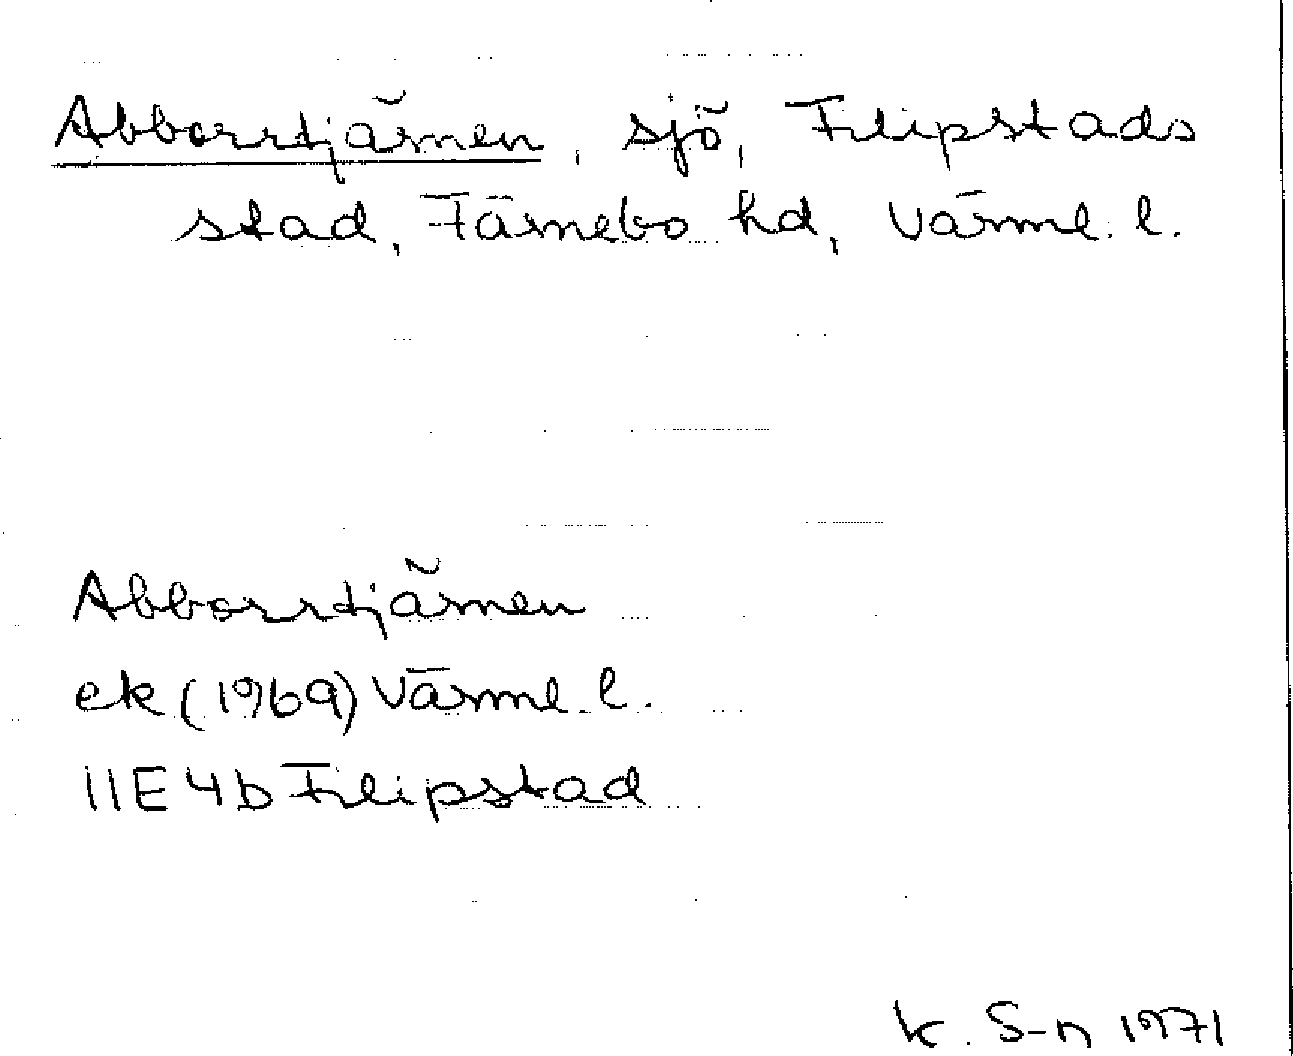 Abborrtjärnen, sjö, Filipstads
stad, Färnebo hd, Värml. l.
Abborrtjärnen
ek (1969) Värml. l.
11E 4b Filipstad
K. S-n 1971